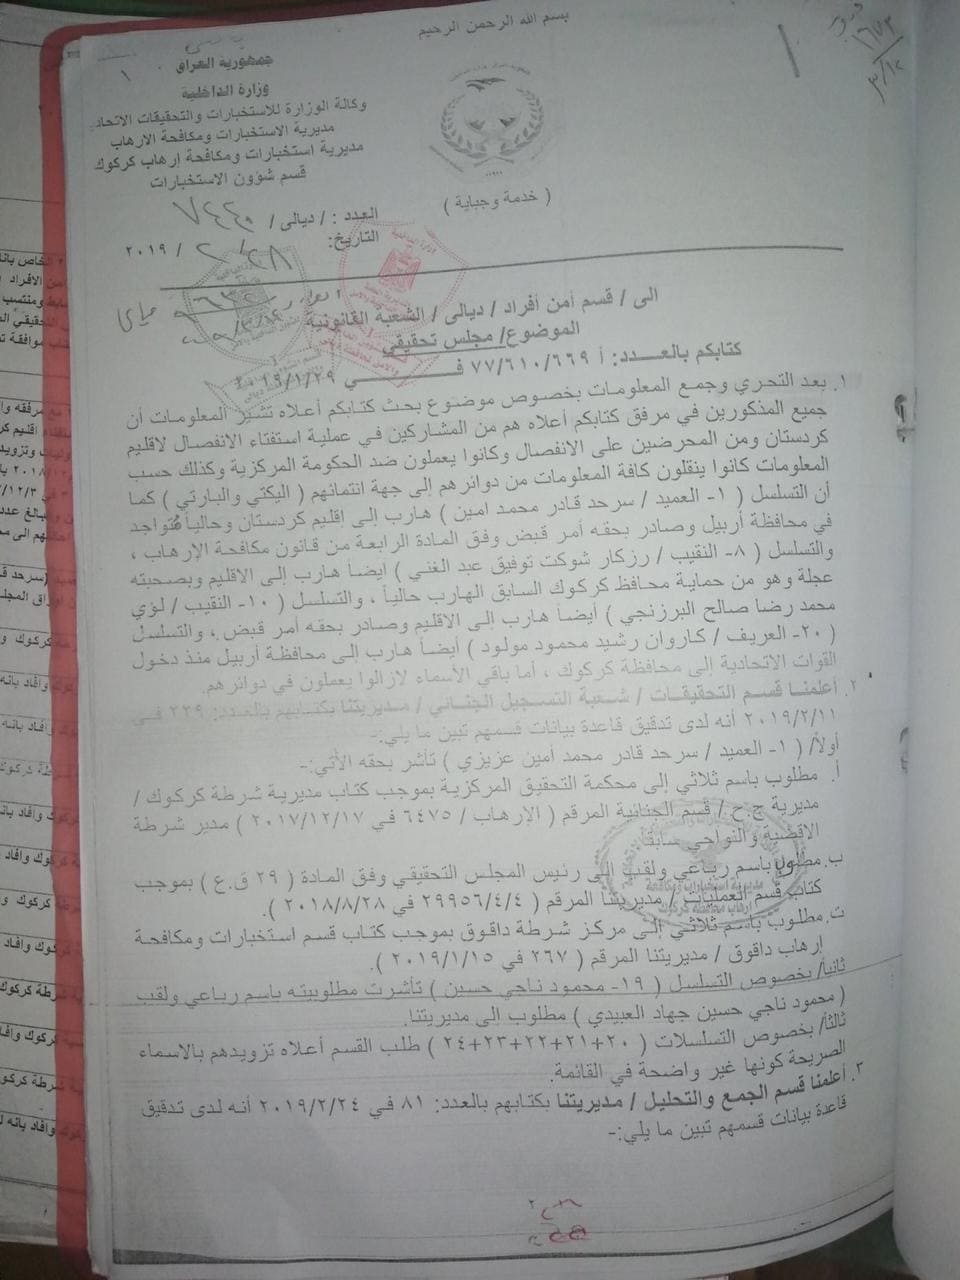 بسم الله الرحمن الرحيم
جمهورية العراق
وزارة الداخلية
وكالة الوزارة للاستخبارات والتحقيقات الاتحادـ
مديرية الاستخبارات ومكافحة الارهاب
مديرية استخبارات ومكافحة إرهاب كركوك
قسم شؤون الاستخبارات
( خدمة وجباية )
العدد : / ديالى / ٧٤٤٠
التاريخ: ٢٨ / ٢ / ٢٠١٩
الى / قسم أمن أفراد / ديالى / الشعبة القانونية
الموضوع/ مجلس تحقيقي
كتابكم بالعـــدد: أ ٧٧/٦١٠/٦٦٩ فـــــــــي ٢٠١٩/١/٢٩
١. بعد التحري وجمع المعلومات بخصوص موضوع بحث كتابكم أعلاه تشير المعلومات أن
جميع المذكورين في مرفق كتابكم أعلاه هم من المشاركين في عملية استفتاء الانفصال لاقليم
كردستان ومن المحرضين على الانفصال وكانوا يعملون ضد الحكومة المركزية وكذلك حسب
المعلومات كانوا ينقلون كافة المعلومات من دوائرهم إلى جهة انتمائهم ( اليكتي والبارتي ) كما
أن التسلسل ( ١- العميد / سرحد قادر محمد امين ) هارب إلى إقليم كردستان وحالياً مُتواجد
في محافظة أربيل وصادر بحقه أمر قبض وفق المادة الرابعة من قانون مكافحة الإرهاب ،
والتسلسل ( ٨- النقيب / رزكار شوكت توفيق عبد الغني ) ايضاً هارب إلى الاقليم وبصحبته
عجلة وهو من حماية محافظ كركوك السابق الهارب حالياً ، والتسلسل ( ١٠- النقيب / لؤي
محمد رضا صالح البرزنجي ) أيضاً هارب إلى الاقليم وصادر بحقه أمر قبض ، والتسلسل
( ٢٠- العريف / كاروان رشيد محمود مولود ) أيضاً هارب إلى محافظة أربيل منذ دخول
القوات الاتحادية إلى محافظة كركوك ، أما باقي الأسماء لازالوا يعملون في دوائرهم.
٢. أعلمنا قسم التحقيقات / شعبة التسجيل الجنائي / مديريتنا بكتابهم بالعدد: ٢٢٩ في
٢٠١٩/٢/١١ أنه لدى تدقيق قاعدة بيانات قسمهم تبين ما يلي:-
أولاً/ ( ١- العميد / سرحد قادر محمد أمين عزيزي ) تأشر بحقه الأتي:-
أ. مطلوب باسم ثلاثي إلى محكمة التحقيق المركزية بموجب كتاب مديرية شرطة كركوك /
مديرية ج.ح / قسم الجنائية المرقم ( الإرهاب / ٦٤٧٥ في ٢٠١٧/١٢/١٧ ) مدير شرطة
الاقضية والنواحي سابقاً
ب. مطلوب باسم رباعي ولقب إلى رئيس المجلس التحقيقي وفق المادة ( ٢٩ ق.ع ) بموجب
كتاب قسم العمليات / مديريتنا المرقم ( ٢٩٩٥٦/٤/٤ في ٢٠١٨/٨/٢٨ ).
ت. مطلوب باسم ثلاثي إلى مركز شرطة داقوق بموجب كتاب قسم استخبارات ومكافحة
إرهاب داقوق / مديريتنا المرقم ( ٢٦٧ في ٢٠١٩/١/١٥ ).
ثانياً/ بخصوص التسلسل ( ١٩- محمود ناجي حسين ) تأشرت مطلوبيته باسم رباعي ولقب
( محمود ناجي حسين جهاد العبيدي ) مطلوب الى مديريتنا.
ثالثاً/ بخصوص التسلسلات ( ٢٠+٢١+٢٢+٢٣+٢٤ ) طلب القسم أعلاه تزويدهم بالاسماء
الصريحة كونها غير واضحة في القائمة.
٣. أعلمنا قسم الجمع والتحليل / مديريتنا بكتابهم بالعدد: ٨١ في ٢٠١٩/٢/٢٤ أنه لدى تدقيق
قاعدة بيانات قسمهم تبين ما يلي:-